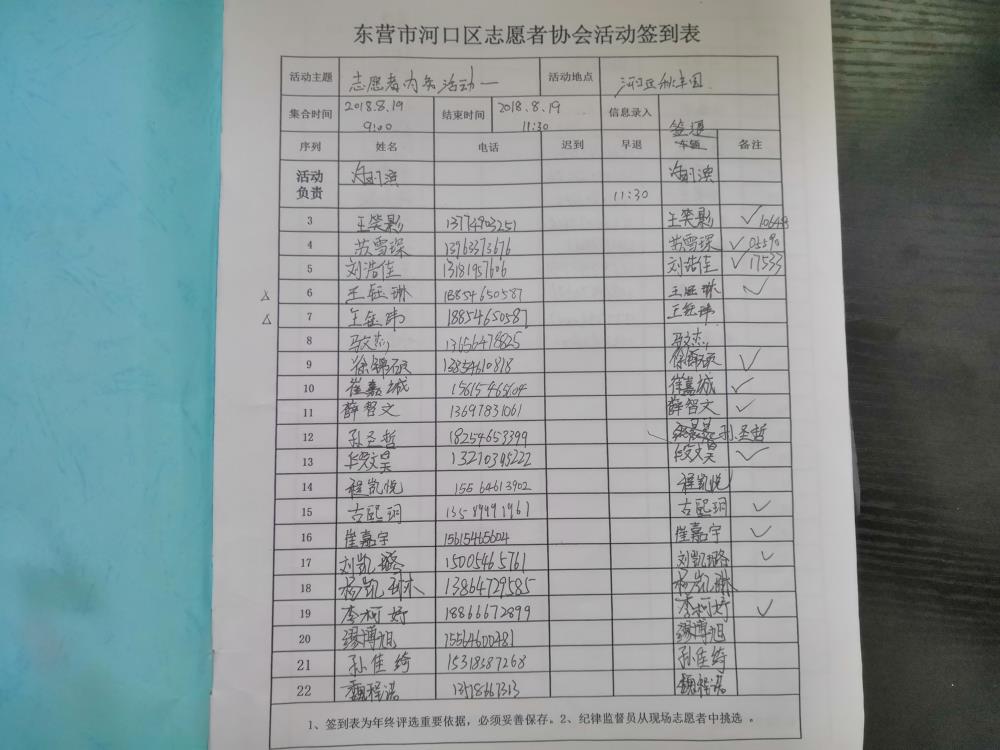 东营市河口区志愿者协会活动签到表
活动主题 志愿者内务活动一 活动地点 河口区
集合时间 2018.8.19 9:00 结束时间 2018.8.19 11:30 信息录入
签退
序列 姓名 电话 迟到 早退 车辆 备注
活动负责 11:30
3 王笑影 13774903251 王笑影 ✓10648
4 苏雪琛 13963373676 苏雪琛 ✓
5 刘浩佳 13181957606 刘浩佳 ✓17533
△ 6 王钰琳 18854650587 王钰琳 ✓
△ 7 王钰玮 18854650587 王钰玮
8 13656478825
9 徐锦硕 13854610818 徐锦硕 ✓
10 崔嘉城 15615465604 崔嘉城 ✓
11 薛智文 13697831061 薛智文 ✓
12 孙圣哲 18254653399 孙圣哲
13 13210345222 ✓
14 程凯悦 15564613902 程凯悦
15 古熙玥 古熙玥 ✓
16 崔嘉宇 15615465604 崔嘉宇 ✓
17 刘凯璐 15005465761 刘凯璐 ✓
18 杨凯琳 13864729585 杨凯琳
19 李柯妤 18866672899 李柯妤 ✓
20 缪博旭 15564600481 缪博旭
21 孙佳绮 15318387268 孙佳绮
22 魏程诺 魏程诺
1、签到表为年终评选重要依据，必须妥善保存。2、纪律监督员从现场志愿者中挑选 。